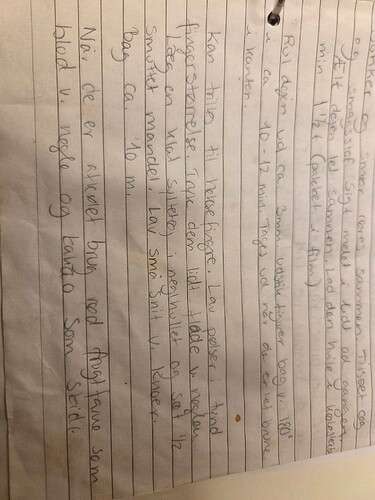 sukker og smør røres sammen. Tilsæt æg
og smagsstof sig mel i lidt ad gangen,
Ælt dejen let sammen. Lad den hvile i køleskab
min 1 1/2 t (pakket i film)
Rul dejen ud ca 3mm udstik figurer bag v. 180°
i ca 10-12 min. Tages ud når de er let brune
i kanten.
Kan trille til heksefingre. Lav pølser i tynd
fingerstørrelse. Tryk dem lidt flade v. neglen
Læg en klat syltetøj i neglhullet og sæt 1/2
smuttet mandel. Lav små snit v. knoer.
Bag ca. 10 m.
Når de er afkølet brun rød frugtfarve som
blod v. negle og kakao som skidt.